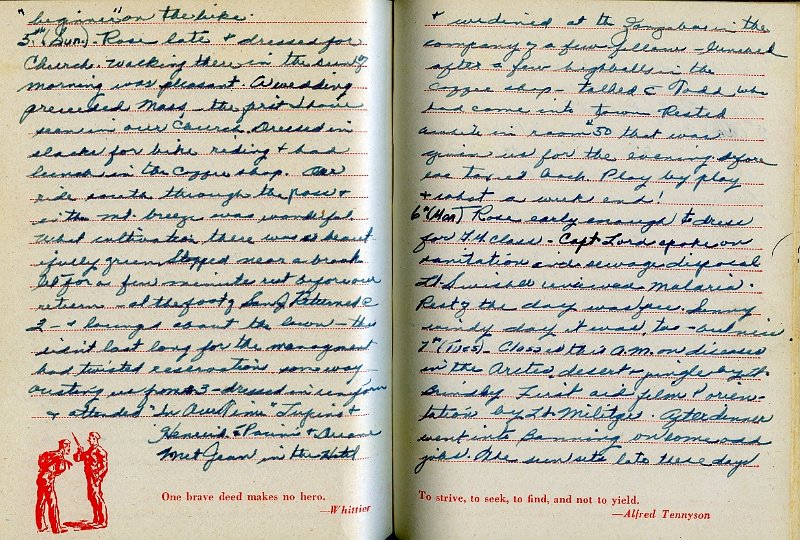 "beginner" on the bike.
5th (Sun.) - Rose late & dressed for
Church. Walking there in the sun of
morning was pleasant. A wedding
preceeded Mass - the first I have
seen in our Church. Dressed in
slacks for bike riding & had
lunch in the Coffee shop. Our
ride south through the pass &
in the mt. breeze was wonderful
What cultivation there was so beaut
ifully green. Stopped near a brook
let for a few minute rest before our
return - at the foot of San J. Returned @
2 - & lounge about the lawn - the
didn't last long for the management
had twisted reservation some way
ousting us from 3 - dressed in uniform
& attended "In Our Time" Lupino &
Henreid. & Drove
Met Jean in the Hotel
One brave deed makes no hero.
—Whittier
& we dined at the Zanzibar in the
company of a few fellows - lunched
after a few highballs in the
Coffee shop - talked c Todd who
had come into town. Rested
awhile in room #50 that was
given us for the evening before
we taxied back. Play by play
& what a week end!
6th (Mon) Rose early enough to dress
for 7:4 class - Capt Lord spoke on
sanitation and sewage disposal
Lt. reviewed Malaria.
Rest of the day was free. Sunny
windy day it was too -
7th (Tues) - Class this A.M. on diseases
in the Arctic, desert & jungle by Lt.
Grimsby. First aid film & orien-
tation by Lt. Militzer. After dinner
went into Banning on some odd
jobs. The sun sets late these days
To strive, to seek, to find, and not to yield.
—Alfred Tennyson